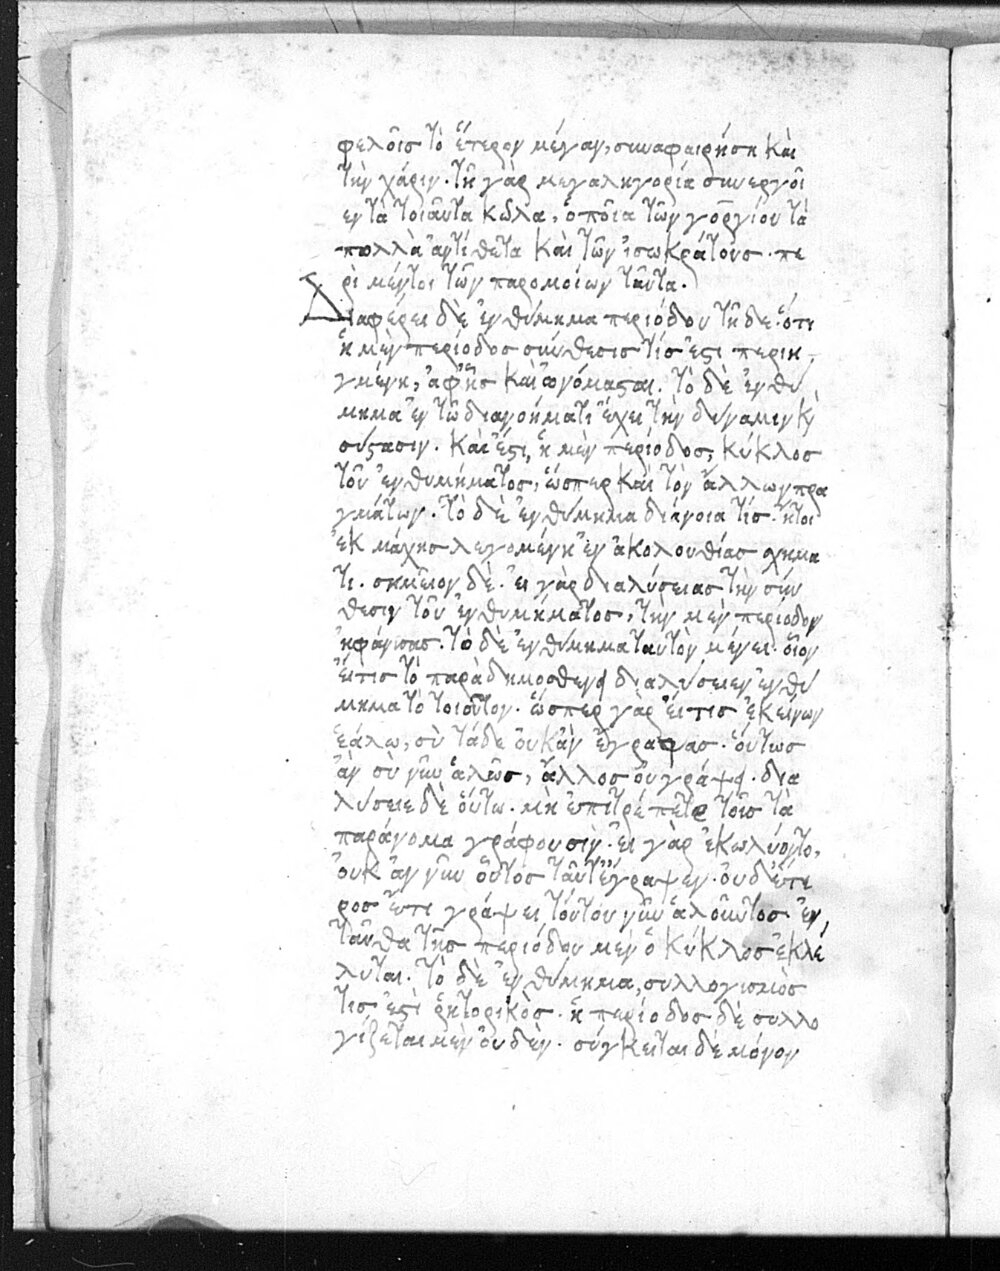 φελοῖσ τὸ ἕτερον μέγαν, συναφαιρήση καὶ
τὴν χάριν. τῆ γὰρ μεγαληγορία συνεργοῖ
εν τὰ τοιαῦτα κῶλα, ὁποῖα τῶν γοργίου τὰ
πολλὰ ἀντίθετα καὶ τῶν ἰσωκράτουσ. πε
ρὶ μέντοι τῶν παρομοίων ταῦτα.
Διαφέρει δὲ ἐνθύμημα περιόδου τῆ δε. ὅτι
ἡ μὲν περίοδοσ σύνθεσισ τίσ ἐστι περιη
γμένη, ἀφῆσ καὶ ὠνόμασται. τὸ δὲ ἐνθύ
μημα ἐν τῶ διανοήματι ἔχει τὴν δύναμιν κὶ
σύστασιν. καὶ ἔστι, ἡ μὲν περίοδοσ, κύκλοσ
τοῦ ἐνθυμήματοσ, ὥσπερ καὶ τὸν ἄλλων πρα
γμάτων. τὸ δὲ ἐνθύμημα διάνοια τίσ. ἤτοι
ἐκ μάχησ λεγομένη ἐν ἀκολουθίασ σχήμα
τι. σημεῖον δὲ. εἰ γὰρ διαλύσειασ τὴν σύν
θεσιν τοῦ ἐνθυμήματοσ, τὴν μὲν περίοδον
ἠφάνισασ. τὸ δὲ ἐνθύμημα ταυτὸν μένει. οἷον
εἴ τισ τὸ παρὰ δημοσθενει διαλύσειεν ἐνθύ
μημα τὸ τοιοῦτον. ὥσπερ γὰρ εἴ τισ ἐκείνων
ἑάλω, σὺ τάδε οὐκ ἂν ἔγραφασ. οὕτωσ
ἂν σὺ νῦν ἁλῶσ, ἄλλοσ οὐ γράψει. δια
λύσειε δὲ οὕτω. μὴ ἐπιτρέπετε τοῖσ τὰ
παράνομα γράφουσιν. εἰ γὰρ ἐκωλύοντο,
οὐκ ἂν νῦν οὗτοσ ταῦτ ἔγραφεν. οὐδ ἕτε
ροσ ἔτι γράψει τούτου νῦν ἁλοῦντοσ ἐν
ταῦθα τῆσ περιόδου μὲν ὁ κύκλοσ ἐκλέ
λυται. τὸ δὲ ἐνθύμημα, συλλογισμὸσ
τίσ, ἐστὶ ῥητορικὸσ. ἡ περίοδοσ δὲ συλλο
γίζεται μὲν οὐδὲν. σύγκειται δὲ μόνον